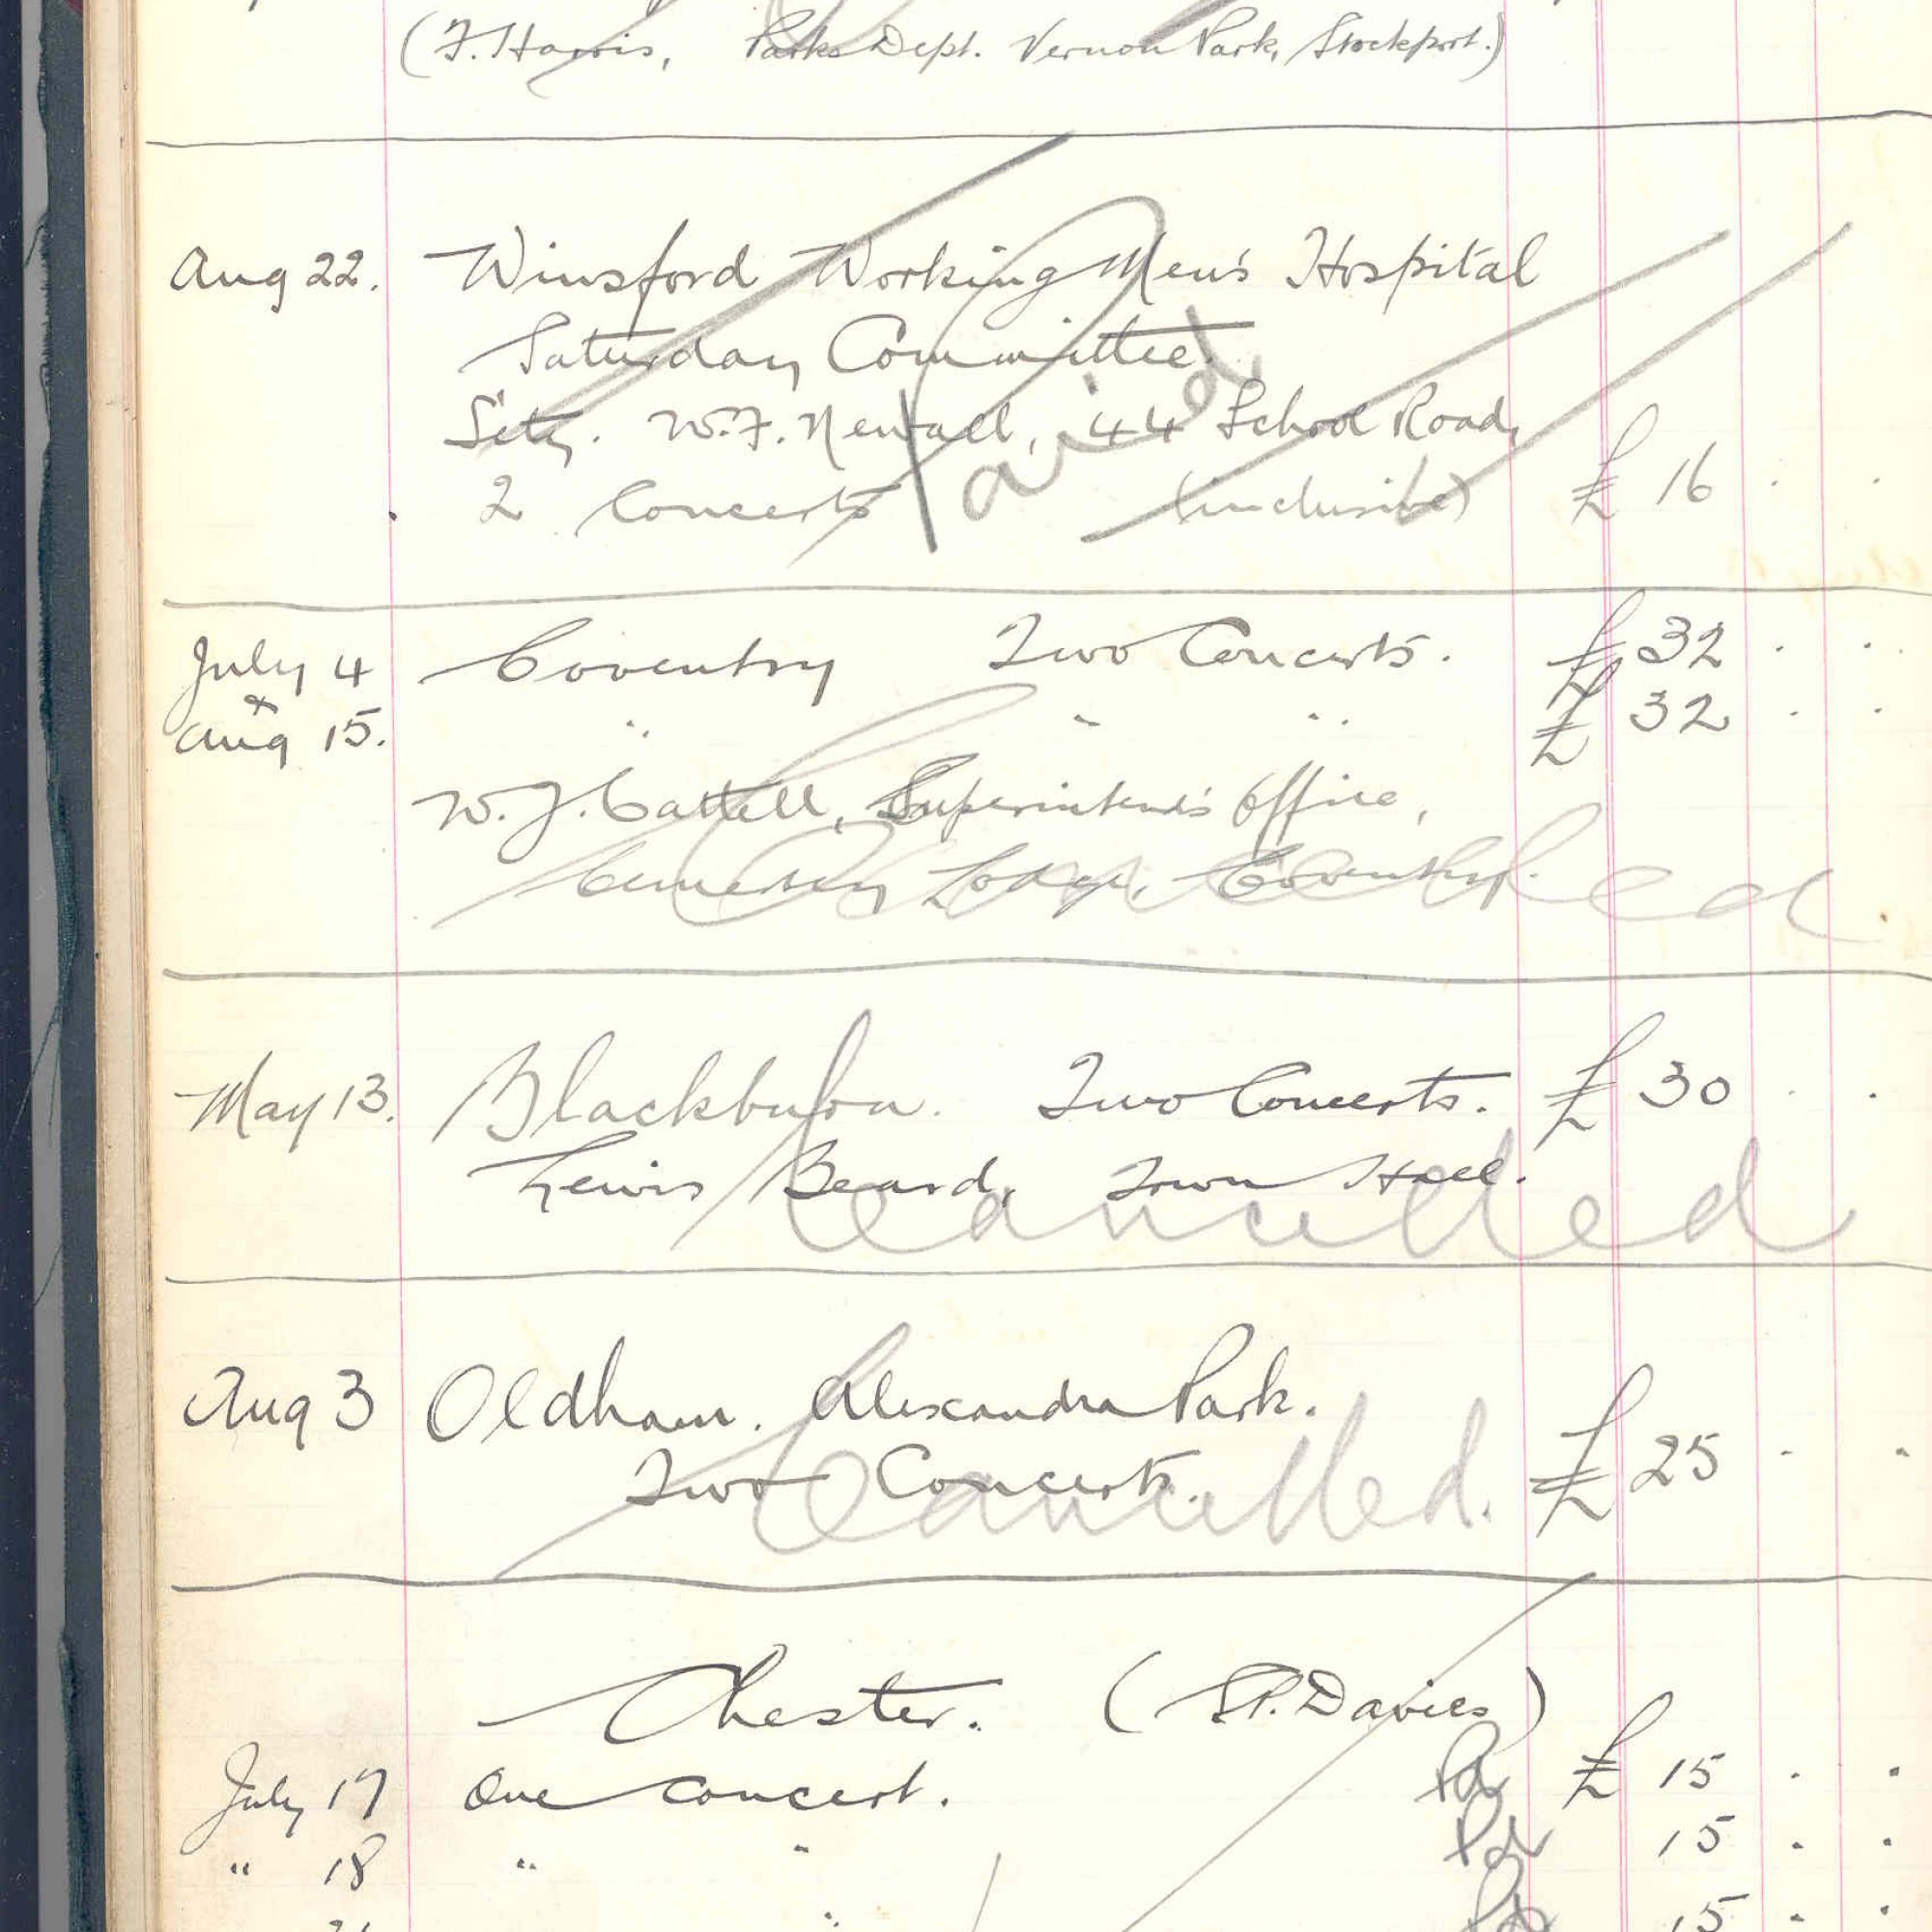 (F. Harris, Parks Dept. Vernon Park, Stockport.)
Aug 22. Winsford Working Men's Hospital
Saturday Committee.
Sety. W.F. Newall, 44 School Road,
2 Concerts (inclusive) £ 16 . .
Paid
July 4 Coventry Two Concerts. £ 32 . .
&
Aug 15. " " " £ 32 . .
W. J. Cattell, Superintend's Office,
Cemetery Lodge, Coventry.
Cancelled
May 13. Blackburn. Two Concerts. £ 30 . .
Lewis Beard, Town Hall.
Cancelled
Aug 3 Oldham. Alexandra Park.
Two Concerts. £ 25 . .
Cancelled.
Chester. (S.P. Davies)
July 17 One Concert. Pd £ 15 . .
" 18 " " Pd 15 . .
" Pd 15 . .